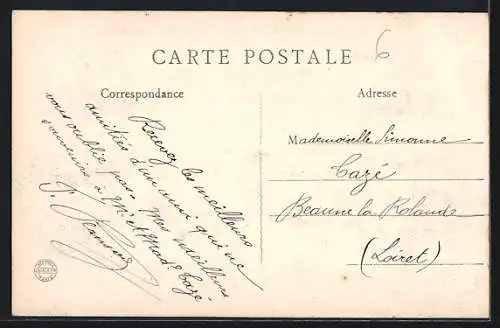 6
CARTE POSTALE
Correspondance
Adresse
Recevez les meilleures
amitiés d'un ami qui ne
vous oublie pas. Mes meilleurs
souvenirs à Mr et Mad. Cazé.
Mademoiselle Simonne
Cazé
Beaune la Rolande
(Loiret)